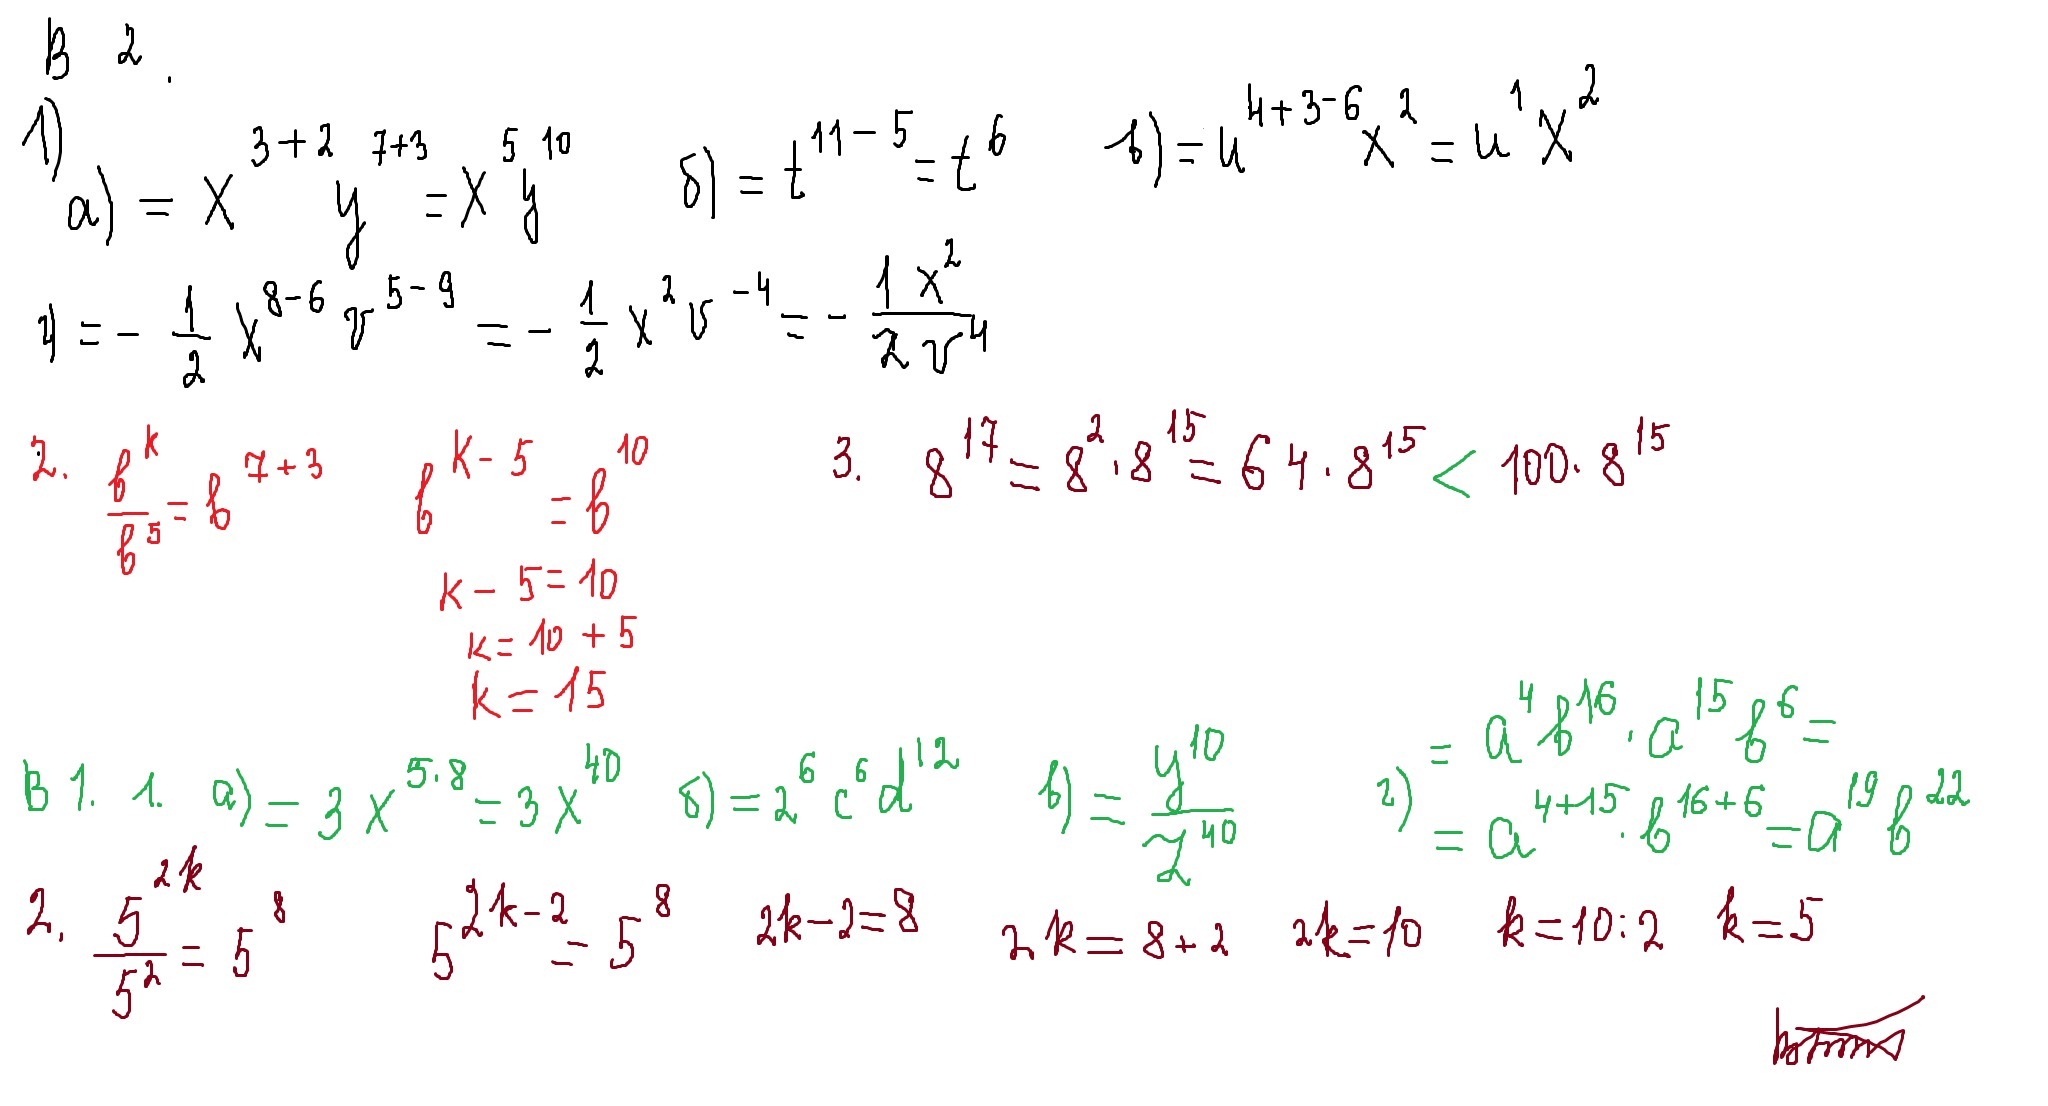 В 2.
1)
а) = x^{3+2} y^{7+3} = x^5 y^{10} б) = t^{11-5} = t^6 в) = u^{4+3-6} x^2 = u^1 x^2
г) = - \frac{1}{2} x^{8-6} v^{5-9} = - \frac{1}{2} x^2 v^{-4} = - \frac{1 x^2}{2 v^4}
2. \frac{b^k}{b^5} = b^{7+3} b^{k-5} = b^{10} 3. 8^{17} = 8^2 · 8^{15} = 64 · 8^{15} < 100 · 8^{15}
k - 5 = 10
k = 10 + 5
k = 15
В 1. 1. а) = 3x^{5·8} = 3x^{40} б) = 2^6 c^6 d^{12} в) = \frac{y^{10}}{z^{40}} г) = a^4 b^{16} · a^{15} b^6 =
= a^{4+15} · b^{16+6} = a^{19} b^{22}
2. \frac{5^{2k}}{5^2} = 5^8 5^{2k-2} = 5^8 2k-2=8 2k = 8+2 2k=10 k=10:2 k=5